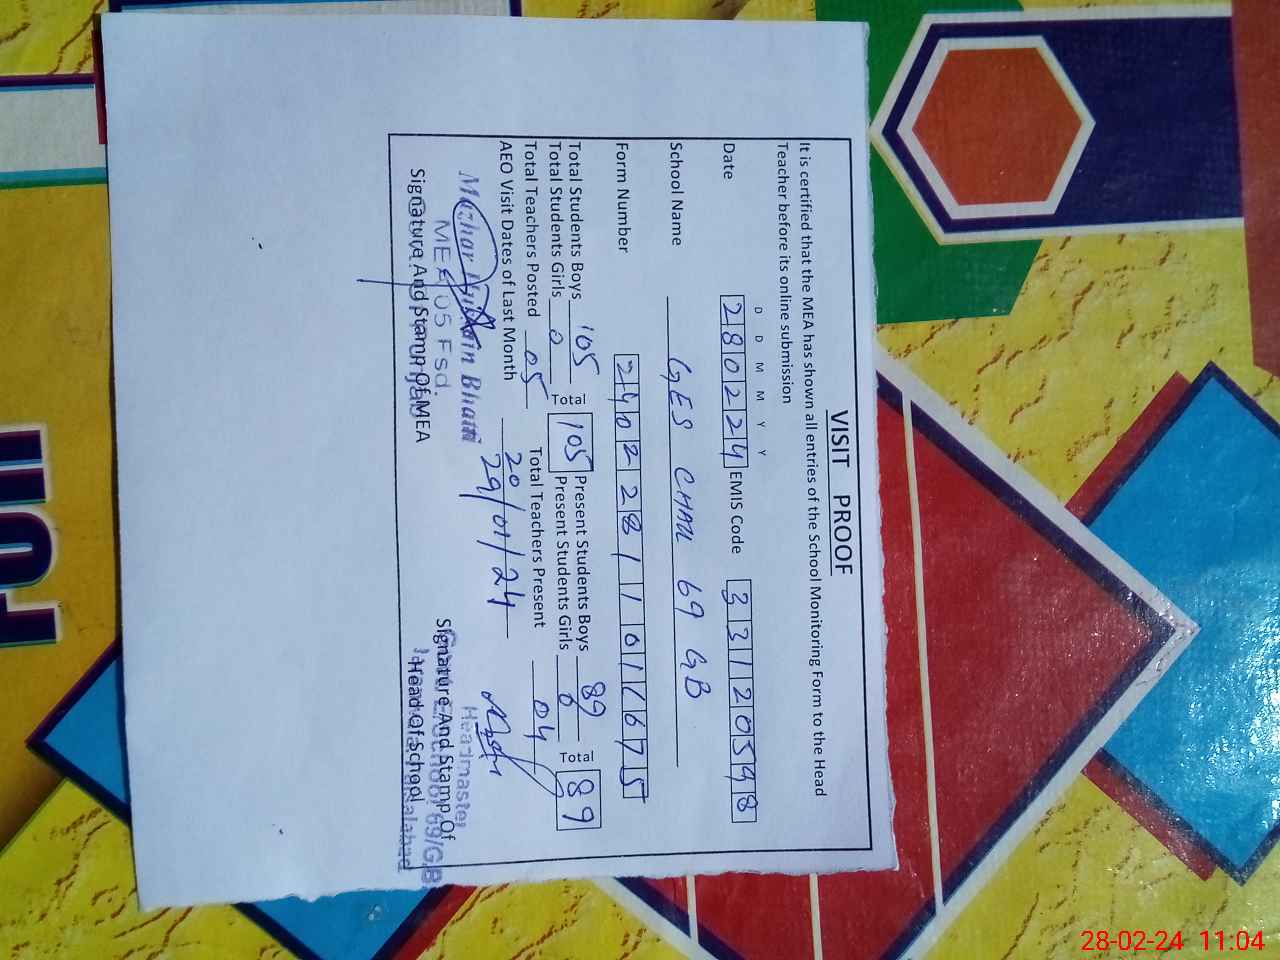 VISIT PROOF
It is certified that the MEA has shown all entries of the School Monitoring Form to the Head
Teacher before its online submission
D D M M Y Y
Date 280224 EMIS Code 33120598
School Name GES CHAK 69 GB
Form Number 2402281101675
Total Students Boys 105 Total 105 Present Students Boys 89 Total 89
Total Students Girls 0 Present Students Girls 0
Total Teachers Posted 05 Total Teachers Present 04
AEO Visit Dates of Last Month 20 29/01/24
Bhatti
MEA 05 Fsd.
Headmaster
Signature And Stamp Of MEA
Signature And Stamp Of
Head Of School
69/G.B
28-02-24 11:04